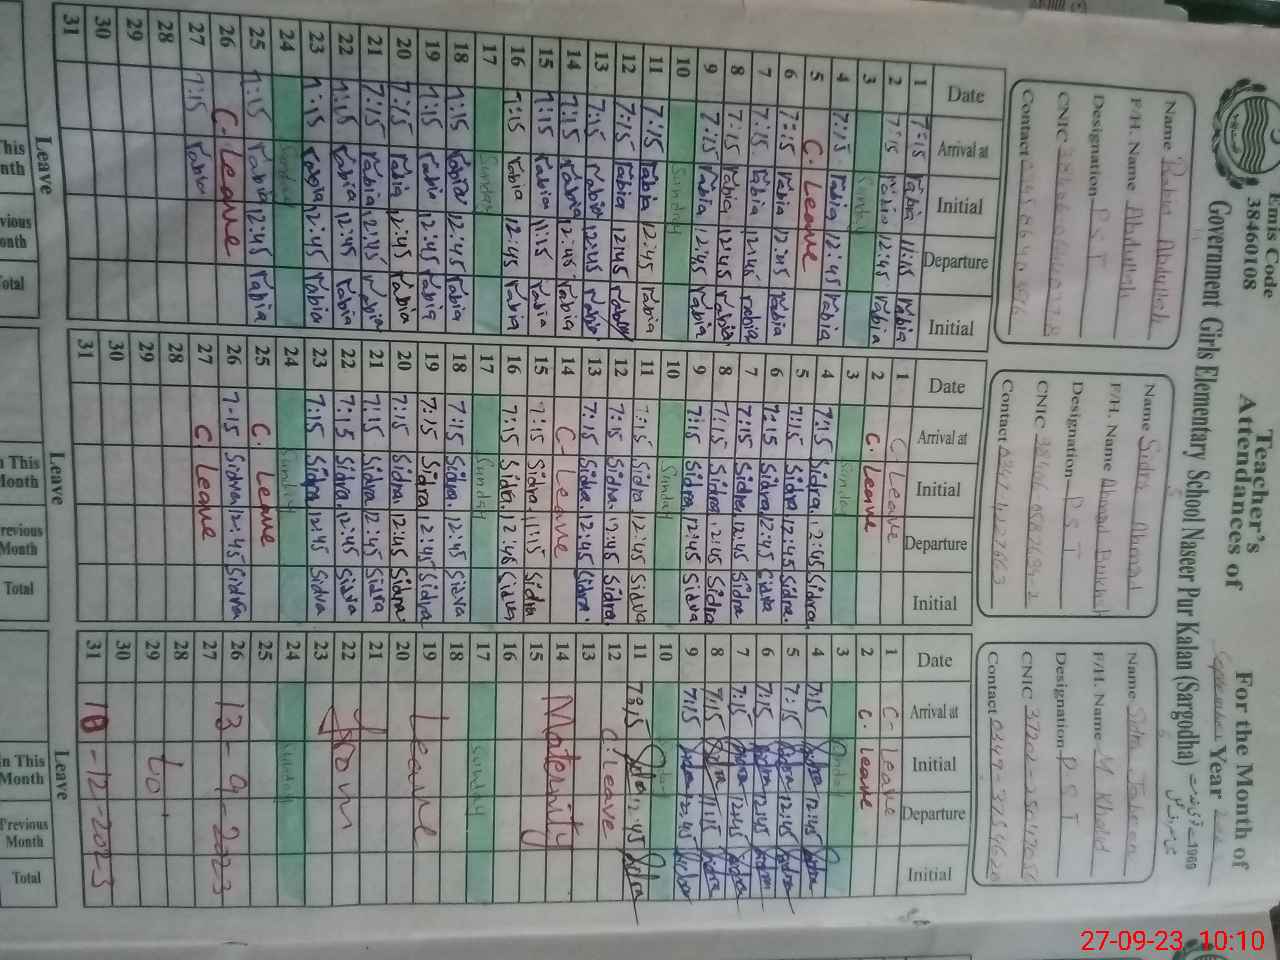 Emis Code
38460108
Teacher's
Attendances of
For the Month of
September Year
Government Girls Elementary School Naseer Pur Kalan (Sargodha)
1969
Name Rabia Abdullah
F/H. Name Abdullah
Designation P S T
CNIC
Contact
Date Arrival at Initial Departure Initial
1 7:15 rabia 11:15 rabia
2 7:15 rabia 12:45 rabia
3 Sunday
4 7:15 rabia 12:45 rabia
5 C. Leave
6 7:15 rabia 12:45 rabia
7 7:15 rabia 12:45 rabia
8 7:15 rabia 12:45 rabia
9 7:15 rabia 12:45 rabia
10 Sunday
11 7:15 rabia 12:45 rabia
12 7:15 rabia 12:45 rabia
13 7:15 rabia 12:45 rabia
14 7:15 rabia 12:45 rabia
15 7:15 rabia 11:15 rabia
16 7:15 rabia 12:45 rabia
17 Sunday
18 7:15 rabia 12:45 rabia
19 7:15 rabia 12:45 rabia
20 7:15 rabia 12:45 rabia
21 7:15 rabia 12:45 rabia
22 7:15 rabia 12:45 rabia
23 7:15 rabia 12:45 rabia
24 Sunday
25 7:15 rabia 12:45 rabia
26 C. Leave
27 7:15 rabia
28
29
30
31
Leave
Name Sidra Ahmad
F/H. Name Ahmad Bukhsh
Designation P S T
CNIC
Contact
Date Arrival at Initial Departure Initial
1 C-Leave
2 C. Leave
3 Sunday
4 7:15 Sidra. 12:45 Sidra.
5 7:15 Sidra 12:45 Sidra.
6 7:15 Sidra 12:45 Sidra
7 7:15 Sidra 12:45 Sidra
8 7:15 Sidra 12:45 Sidra
9 7:15 Sidra 12:45 Sidra
10 Sunday
11 7:15 Sidra 12:45 Sidra
12 7:15 Sidra. 12:45 Sidra.
13 7:15 Sidra. 12:45 Sidra.
14 C-Leave
15 7:15 Sidra. 11:15 Sidra
16 7:15 Sidra. 12:46 Sidra
17 Sunday
18 7:15 Sidra. 12:45 Sidra
19 7:15 Sidra 12:45 Sidra
20 7:15 Sidra. 12:45 Sidra
21 7:15 Sidra. 12:45 Sidra
22 7:15 Sidra. 12:45 Sidra
23 7:15 Sidra 12:45 Sidra
24 Sunday
25 C. Leave
26 7-15 Sidra 12:45 Sidra
27 C Leave
28
29
30
31
Leave
In This Month
Previous Month
Total
Name Sidra Jabeen
F/H. Name M Khalid
Designation P S T
CNIC
Contact
Date Arrival at Initial Departure Initial
1 C-Leave
2 C. Leave
3 Sunday
4 7:15 Sidra 12:45 Sidra
5 7:15 Sidra 12:45 Sidra
6 7:15 Sidra 12:45 Sidra
7 7:15 Sidra 12:45 Sidra
8 7:15 Sidra 11:15 Sidra
9 7:15 Sidra 12:45 Sidra
10 Sunday
11 7:15 Sidra 12:45 Sidra
12 C. Leave
13
14 Maternity
15
16
17 Sunday
18
19 Leave
20
21
22 from
23
24 Sunday
25
26 13-9-2023
27
28
29 to
30
31 10-12-2023
Leave
In This Month
Previous Month
Total
27-09-23 10:10